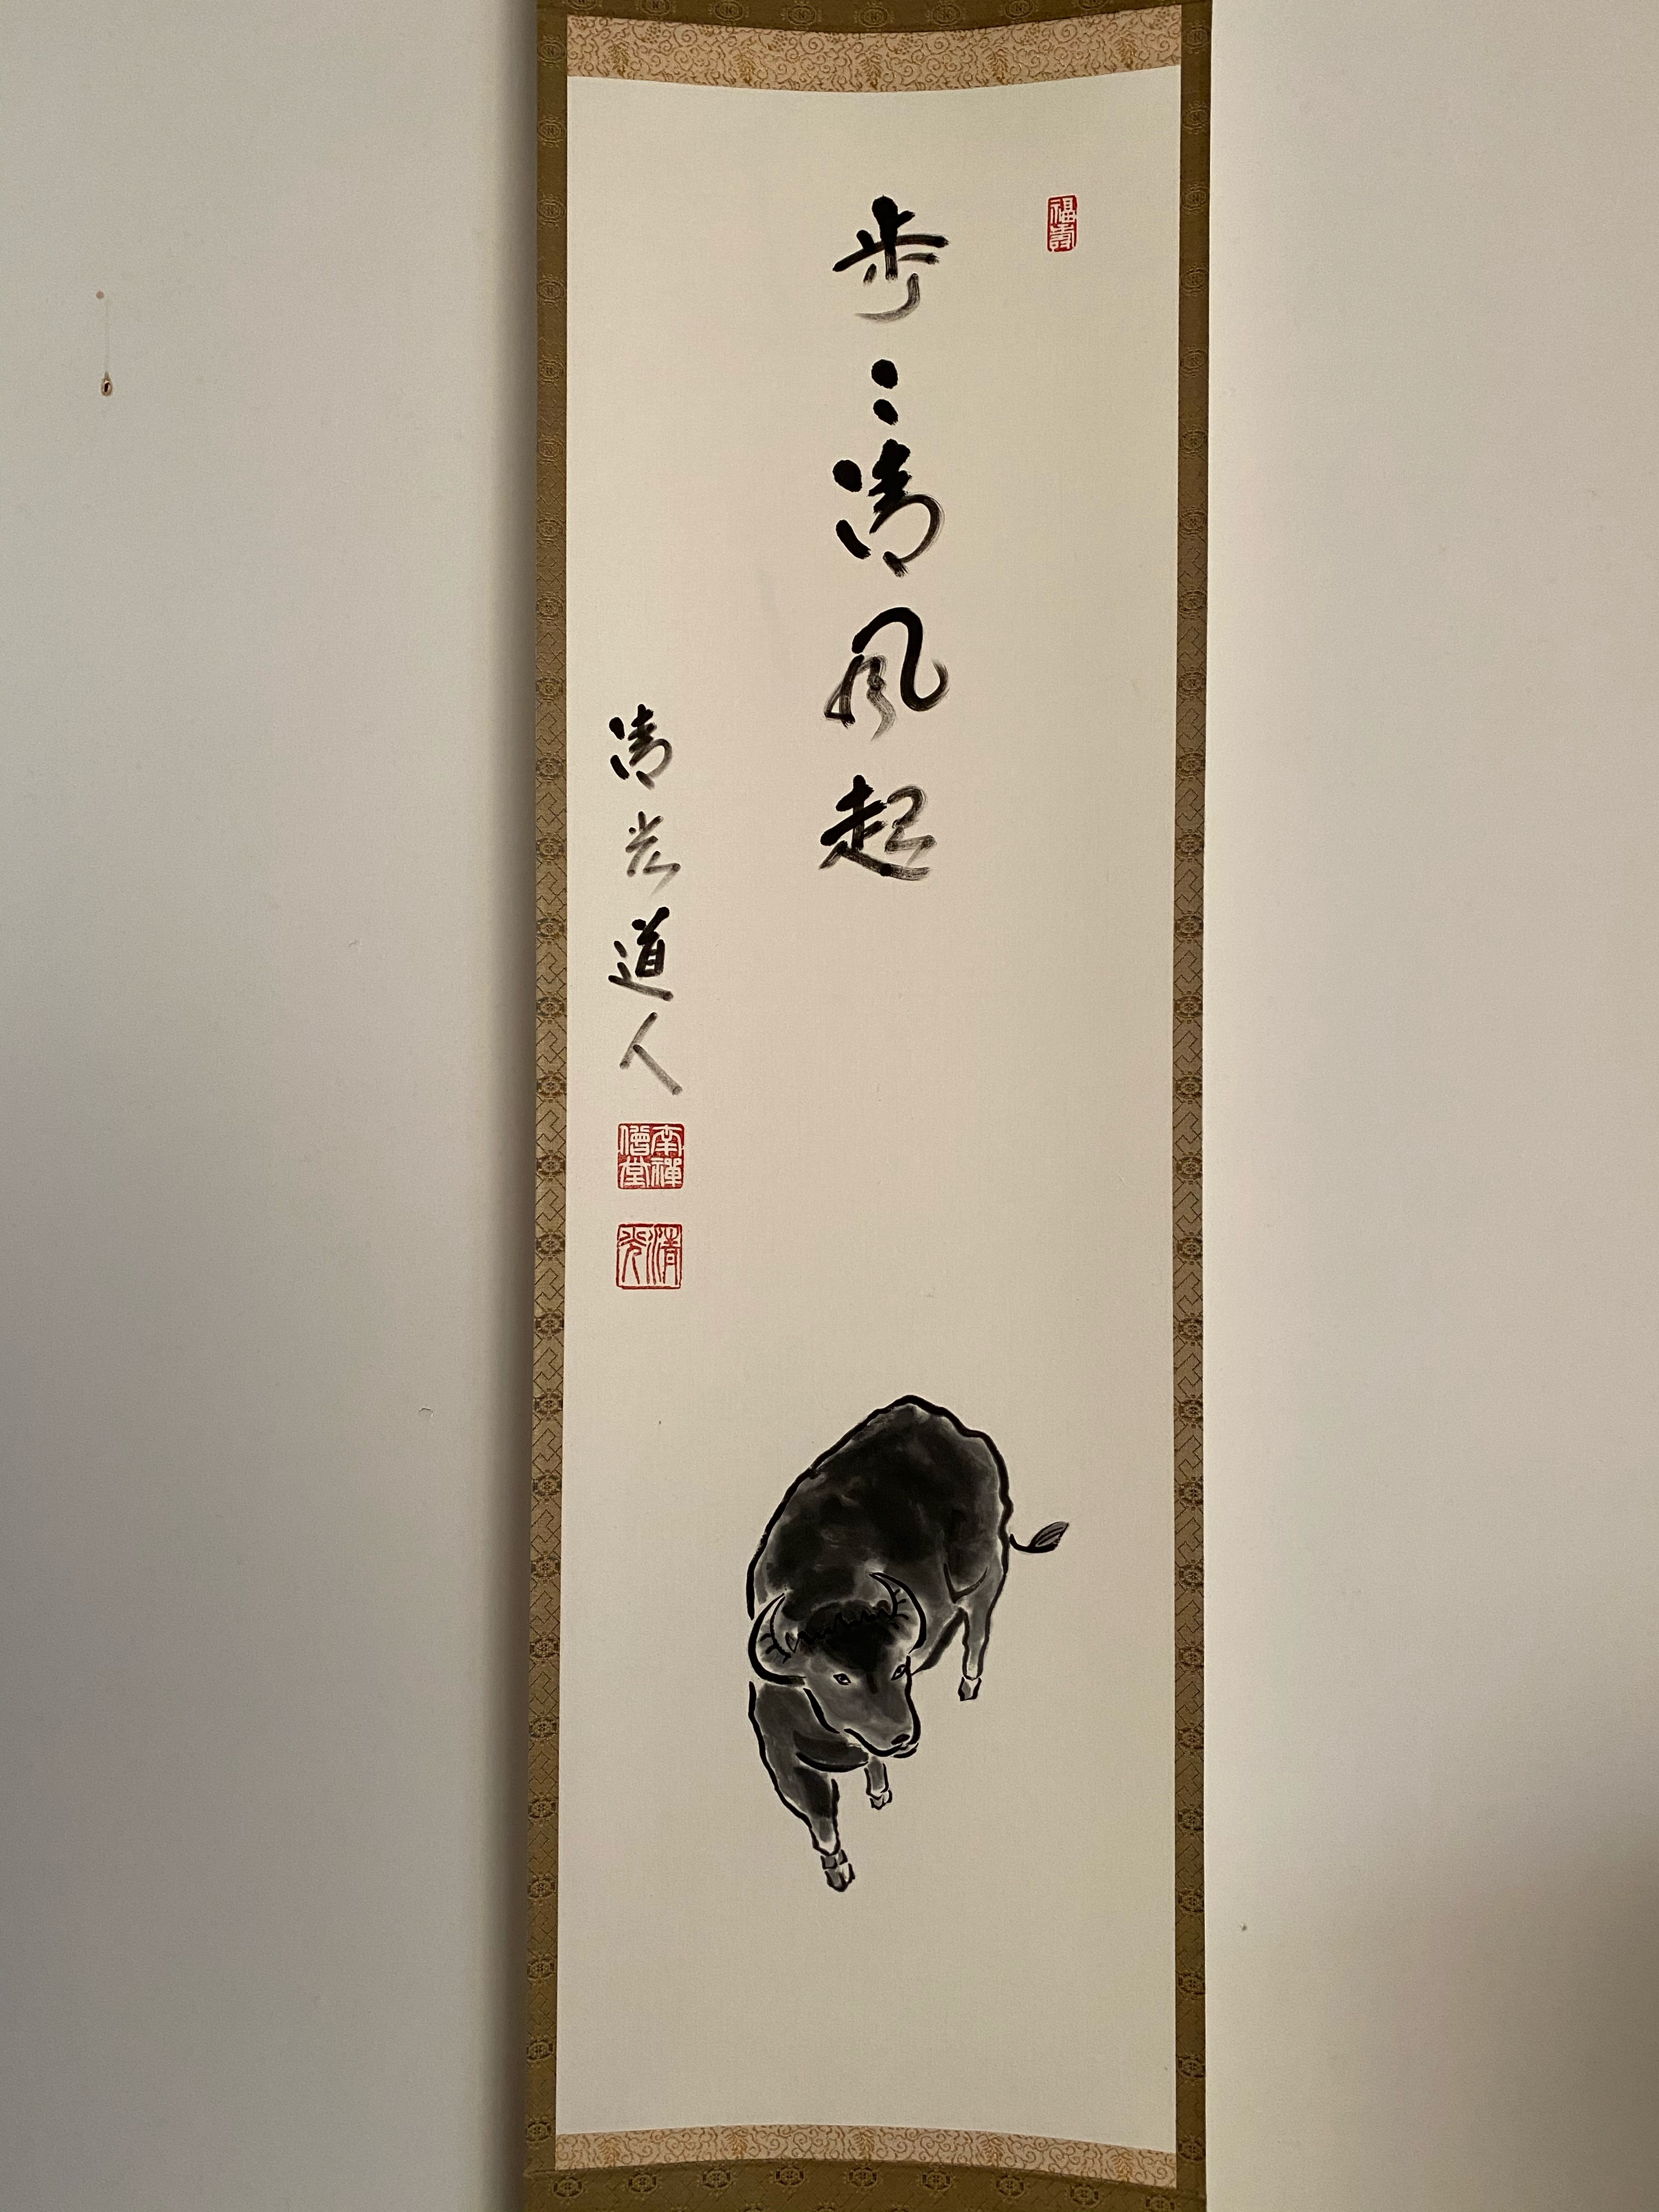 福壽
步〻清風起
清光道人
南禪僧堂
清光